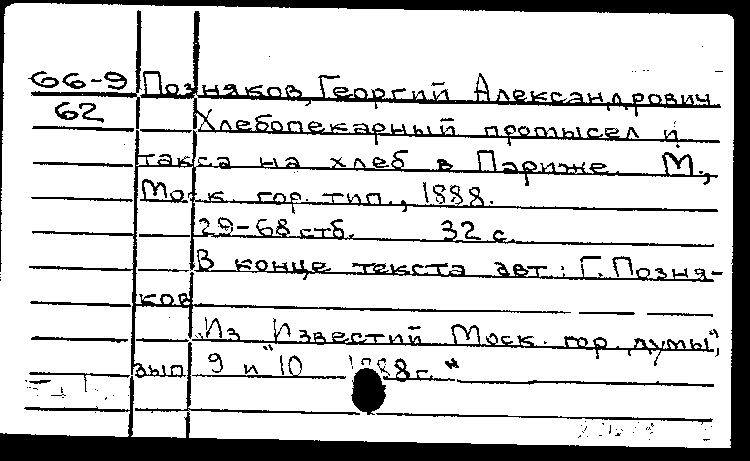 66-9 Позняков, Георгий Александрович
62 Хлебопекарный промысел и
такса на хлеб в Париже. М.,
Моск. гор. тип., 1888.
29-68 стб. 32 с.
В конце текста авт: Г. Позня-
ков
"Из Известий Моск. гор. думы",
вып 9 и "10 1888 г."